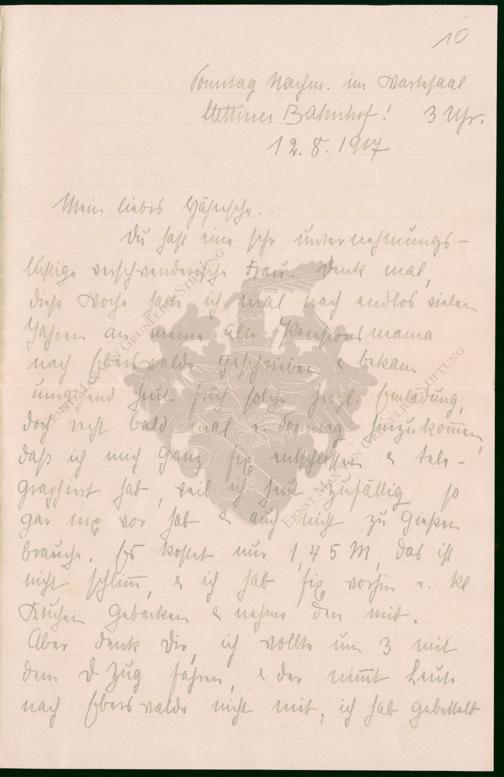 10
Sonntag Nachm. im Wartesaal
Stettiner Bahnhof! 3 Uhr.
12.8.1917
Mein liebes Häschen.
Du hast eine sehr unternehmungs-
lustige verschwenderische Frau. Denk mal,
diese Woche hatte ich mal nach endlos vielen
Jahren an meine alte Pensionsmama
nach Eberswalde geschrieben & bekam
umgehend heut früh solche herzl. Einladung,
doch recht bald mal e. Sonntag hinzukommen,
daß ich mich ganz fix entschlossen & tele-
graphiert hab, weil ich heut zufällig so
gar nix vor hab & auch nicht zu gießen
brauche. Es kostet nur 1,45 M, das ist
nicht schlimm, & ich hab fix vorhin e. kl.
Kuchen gebacken & nehme den mit.
Aber denk Dir, ich wollte um 3 mit
dem D Zug fahren, & der nimmt Leute
nach Eberswalde nicht mit, ich hab gebettelt
ERNST MARTIN GRÜNLICH STIFTUNG
ERNST MARTIN GRÜNLICH STIFTUNG